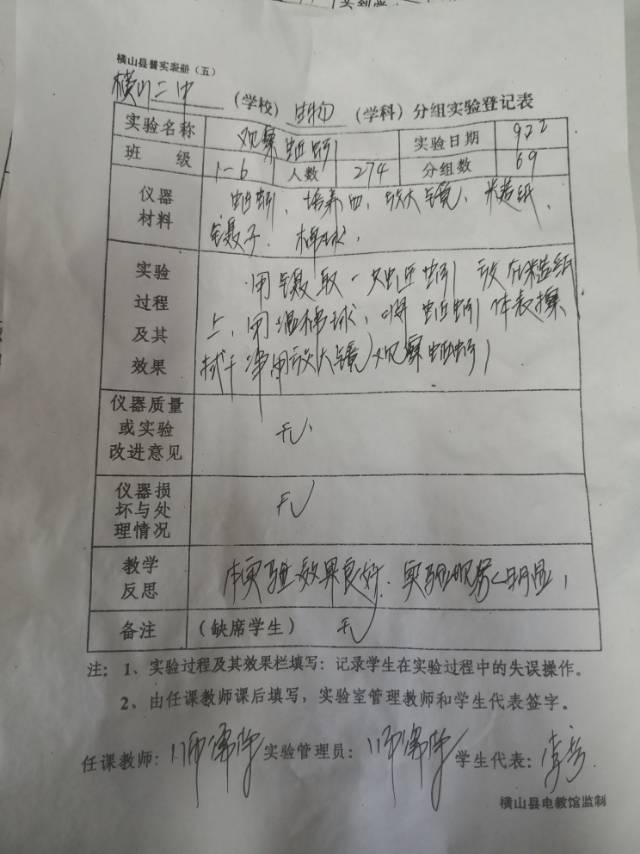 横山县普实表册（五）
横山二中（学校）生物（学科）分组实验登记表
实验名称 观察蚯蚓 实验日期 922
班级 1-6 人数 274 分组数 69
仪器材料 蚯蚓、培养皿、放大镜、糙纸、
镊子、棉球、
实验过程及其效果 用镊取一只蚯蚓放在糙纸
上、用湿棉球，将蚯蚓体表擦
拭干净用放大镜观察蚯蚓
仪器质量或实验改进意见 无
仪器损坏与处理情况 无
教学反思 本实验效果良好．实验现象明显
备注 （缺席学生） 无
注：1、实验过程及其效果栏填写：记录学生在实验过程中的失误操作。
2、由任课教师课后填写，实验室管理教师和学生代表签字。
任课教师： 实验管理员： 学生代表：
横山县电教馆监制